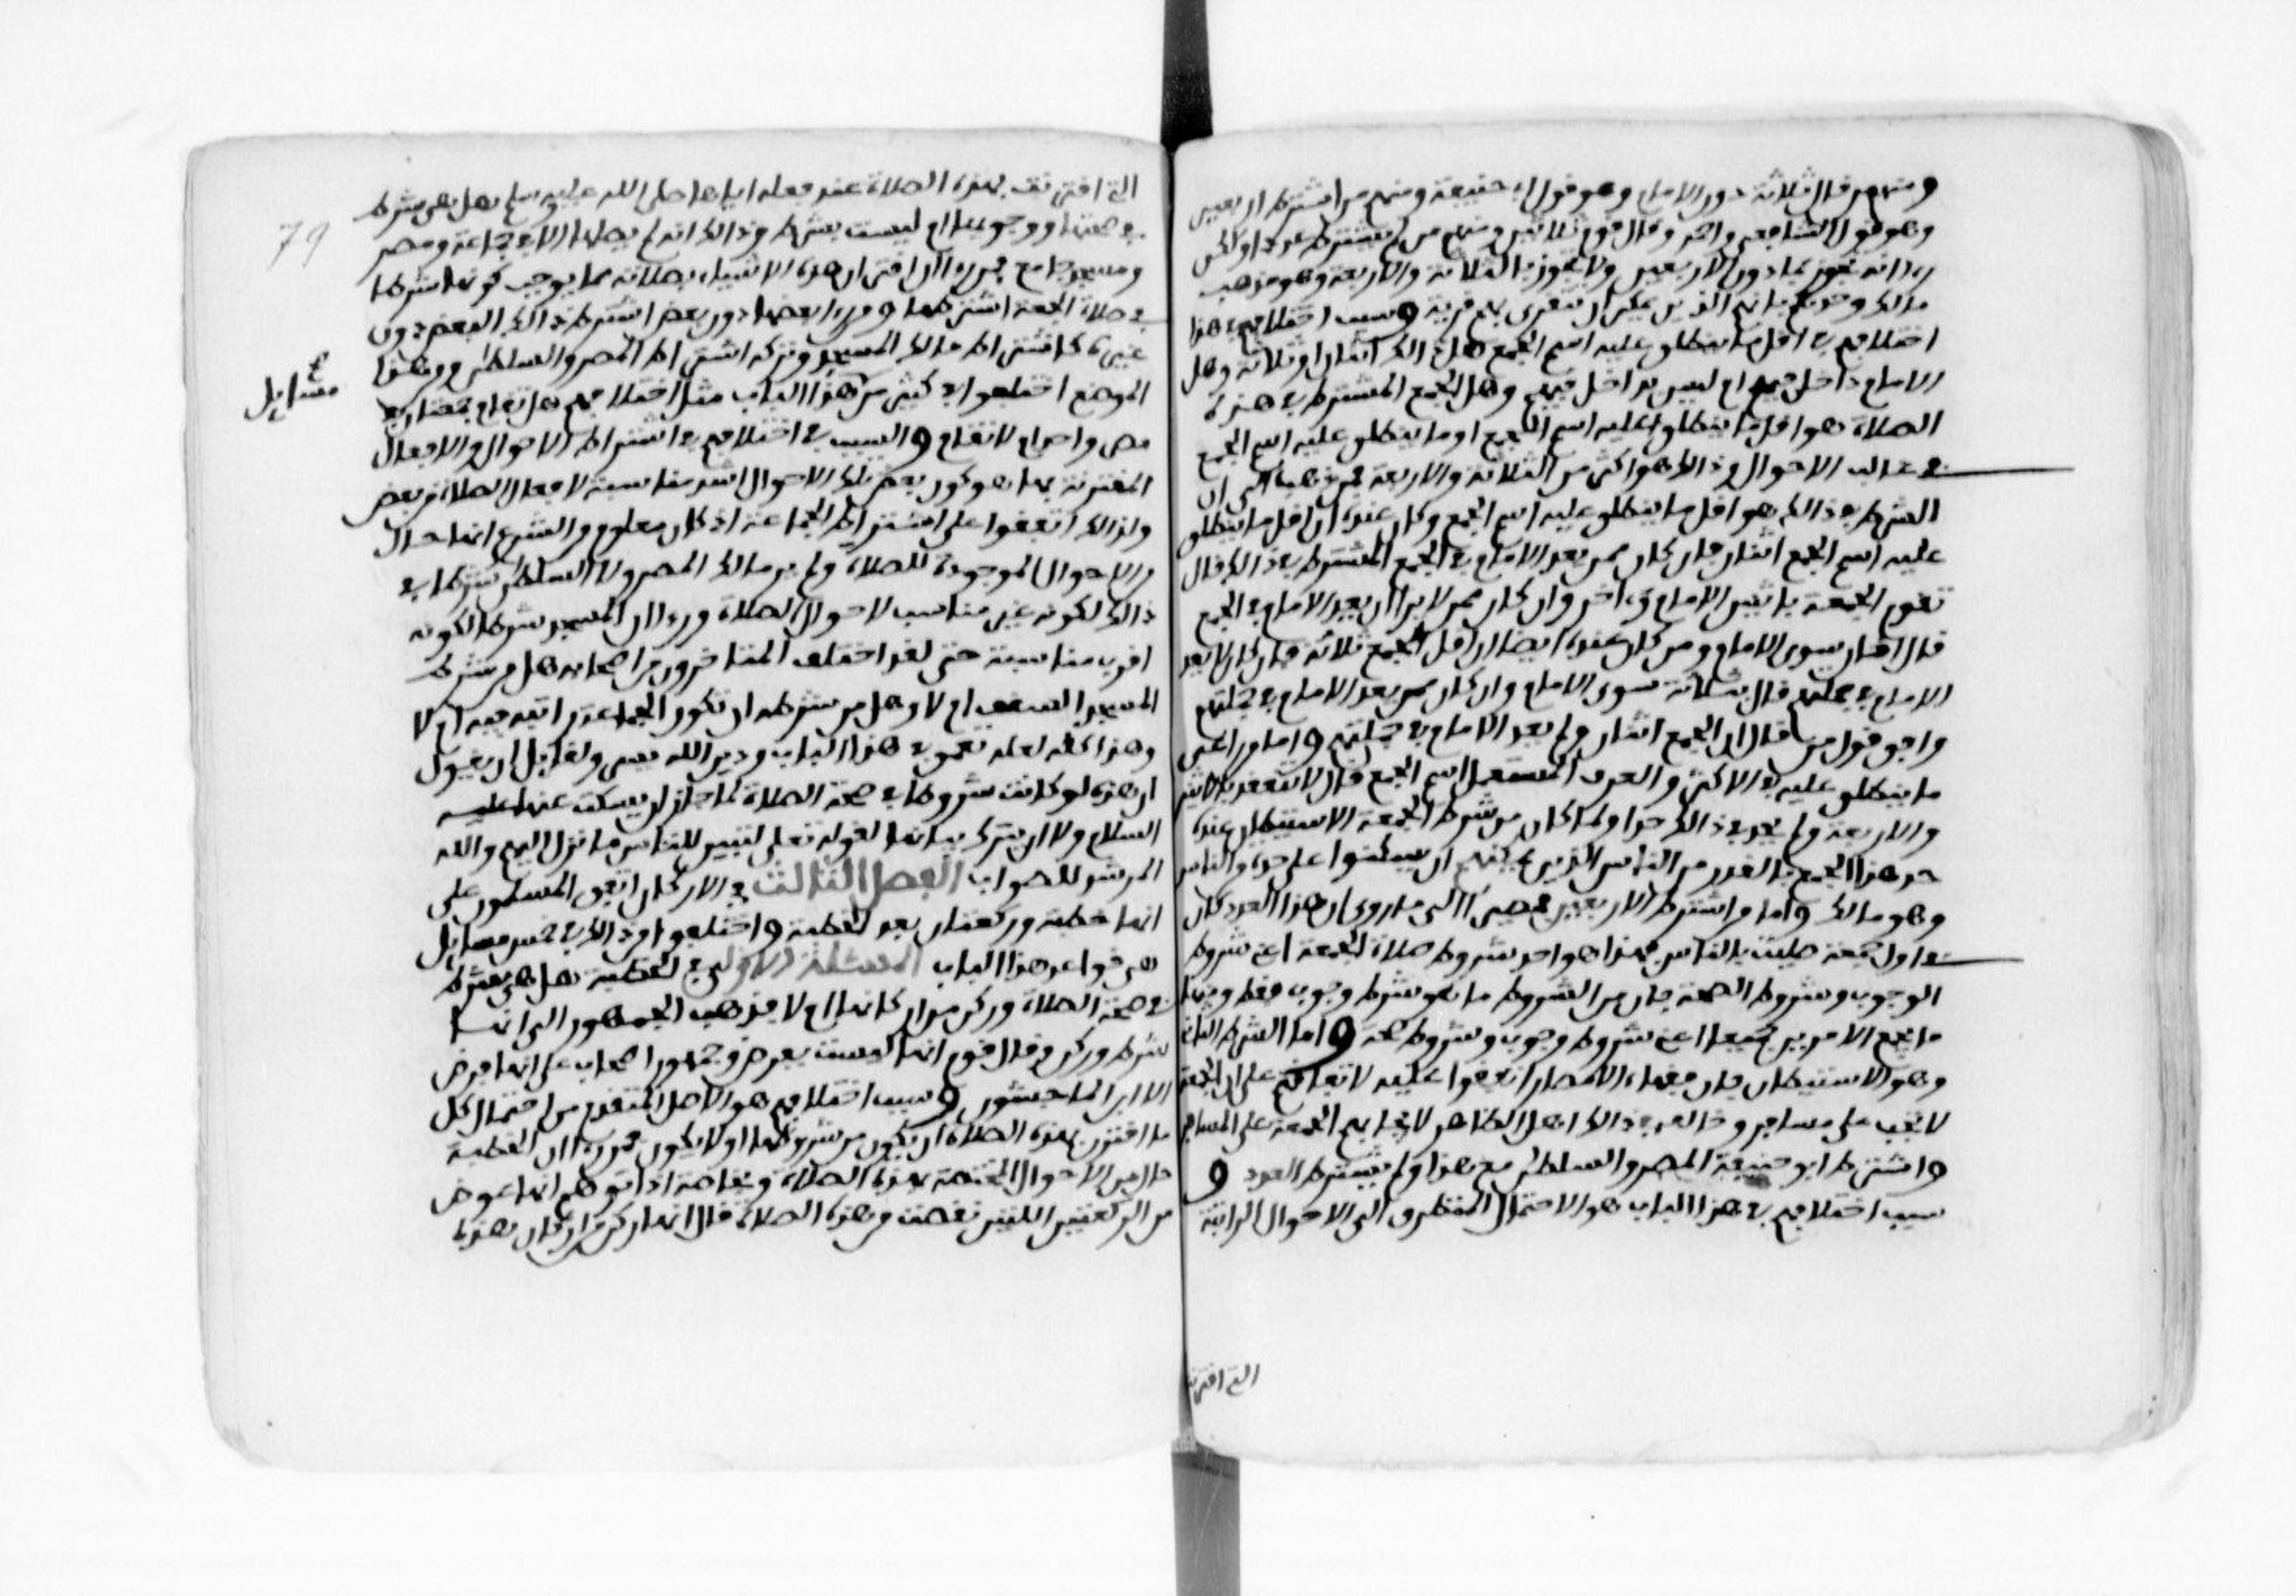 ومنهم من قال ثلاثة دون الامام وهو قول ابي حنيفة ومنهم من اشترط اربعين
وهو قول الشافعي واحمد وقال قوم ثلاثين ومنهم من لم يشترط عددا ولكن
رءا انه تجوز بما دون الاربعين ولا تجوز بالثلاثة والاربعة وهو مذهب
مالك وحدهم بانهم الذين يمكن ان تتقرى بهم قرية وسبب اختلافهم في هذا
اختلافهم في اقل ما ينطلق عليه اسم الجمع هل ذالك اثنان او ثلاثة وهل
الامام داخل فيهم ام ليس بداخل فيهم وهل الجمع المشترط في هذه
الصلاة هو اقل ما ينطلق عليه اسم الجمع او ما ينطلق عليه اسم الجمع
في غالب الاحوال وذالك هو اكثر من الثلاثة والاربعة فمن ذهب الى ان
الشرط في ذالك هو اقل ما ينطلق عليه اسم الجمع وكان عنده ان اقل ما ينطلق
عليه اسم الجمع اثنان فان كان ممن يعد الامام في الجمع المشترط في ذالك قال
تقوم الجمعة باثنين الامام وءاخر وان كان ممن لا يرا ان يعد الامام في الجمع
قال اثنان سوى الامام ومن كان عنده ايضا ان اقل الجمع ثلاثة فان كان لا يعد
الامام في جملتهم قال بثلاثة سوى الامام وان كان ممن يعد الامام في جملتهم
وافق قول من قال ان الجمع اثنان ولم يعد الامام في جملتهم واما من راعى
ما ينطلق عليه في الاكثر والعرف المستعمل اسم الجمع قال لا تنعقد بالاثنين
والاربعة ولم يحد في ذالك حدا ولما كان من شرط الجمعة الاستيطان عنده
حد هذا الجمع بالقدر من الناس الذين يمكنهم ان يسكنوا على حدة من الناس
وهو مالك واما من اشترط الاربعين فمصيرا الى ما روي ان هذا العدد كان
في اول جمعة صليت بالناس فهذا هو احد شروط صلاة الجمعة اعني شروط
الوجوب وشروط الصحة فان من الشروط ما هو شرط وجوب فقط ومنها
ما يجمع الامرين جميعا اعني شروط وجوب وشروط صحة واما الشرط الثاني
وهو الاستيطان فان فقهاء الامصار اتفقوا عليه لاتفاقهم على ان الجمعة
لا تجب على مسافر وخالف في ذالك اهل الظاهر لايجابهم الجمعة على المسافر
واشترط ابو حنيفة المصر والسلطن مع هذا ولم يشترط العدد و
سبب اختلافهم في هذا الباب هو الاحتمال المتطرق الى الاحوال الراتبة
التي اقترنت
79
التي اقترنت بهذه الصلاة عند فعله اياها صلى الله عليه وسلم هل هي شرط
في صحتها او وجوبها ام ليست بشرط وذالك انه لم يصلها الا في جماعة ومصر
ومسجد جامع فمن رءا ان اقتران هذه الاشياء بصلاته مما يوجب كونها شرطا
في صلاة الجمعة اشترطها ومن رءا بعضها دون بعض اشترط ذالك البعض دون
غيره كاشتراط مالك المسجد وتركه اشتراط المصر والسلطن ومن هذا
الموضع اختلفوا في كثير من هذا الباب مثل اختلافهم هل تقام جمعتان في
مسايل
مصر واحد ام لا تقام والسبب في اختلافهم في اشتراط الاحوال والافعال
المقترنة بها هو كون بعض تلك الاحوال اشد مناسبة لافعال الصلاة من بعض
ولذالك اتفقوا على اشتراط الجماعة اذ كان معلوم من الشرع انها حال
من الاحوال الموجودة للصلاة ولم ير مالك المصر ولا السلطن شرطا في
ذالك لكونه غير مناسب لاحوال الصلاة ورءا ان المسجد شرطا لكونه
اقرب مناسبة حتى لقد اختلف المتاخرون من اصحابه هل من شرط
المسجد السقف ام لا وهل من شرطه ان تكون الجماعة راتبة فيه ام لا
وهذا كله لعله تعمق في هذا الباب ودين الله يسر ولقايل ان يقول
ان هذه لو كانت شروطا في صحة الصلاة لما جاز ان يسكت عنها عليه
السلام ولا ان يترك بيانها لقوله تعلى لتبين للناس ما نزل اليهم والله
المرشد للصواب الفصل الثالث في الاركان اتفق المسلمون على
انها خطبة وركعتان بعد الخطبة واختلفوا من ذالك في خمس مسايل
هي قواعد هذا الباب المسئلة الاولى في الخطبة هل هي شرط
في صحة الصلاة وركن من اركانها ام لا فذهب الجمهور الى انها
شرط وركن وقال قوم انها ليست بفرض وجمهور اصحاب على انها فرض
الا ابن الماجشون وسبب اختلافهم هو الاصل المتقدم من احتمال كل
ما اقترن بهذه الصلاة ان يكون من شروطها او لا يكون فمن رءا ان الخطبة
حال من الاحوال المختصة بهذه الصلاة وبخاصة اذا توهم انها عوض
من الركعتين اللتين نقصت من هذه الصلاة قال انها ركن من اركان هذه